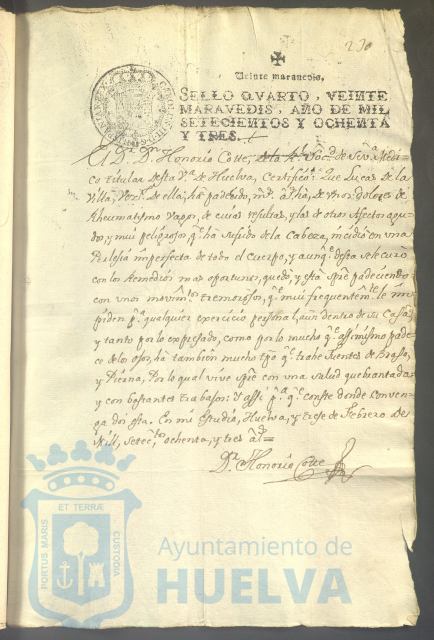 230
Veinte maravedis.
SELLO QVARTO, VEINTE
MARAVEDIS, AÑO DE MIL
SETECIENTOS Y OCHENTA
Y TRES.
El Dr. Dn. Honorio Cotte, de la Rl. Soc.d de Sev.a Medi-
co titular desta V.a de Huelva, Certifico: Que Lucas de la
Villa, Vez.o de ella; ha padecido, de unos dolores de
Rheumatismo Vago, de cuias resultas, y las de otros afectos agu-
dos, y mui peligrosos q.e ha sufrido de la Cabeza, incidió en una
Perlesia imperfecta de todo el cuerpo, y aunq.e desta se le curó
con los Remedios mas oportunos, quedó, y está spre padeciendo
con unos movim.tos tremorosos, q.e mui frequentem.te le im-
piden p.a qualquier exercicio personal, aun dentro de su Casa,
y tanto por lo expresado, como por lo mucho q.e assimismo pade-
ce de los ojos, ha tambien mucho tpo q.e trahe fuentes de Brazo,
y Pierna, Por lo qual vive spre con una salud quebrantada
y con bastantes trabajos: Y assi p.a q.e conste donde conven-
ga doi esta. En mi Estudio, Huelva, y trese de Febrero de
Mill, Setec.tos ochenta, y tres a.s=
Dr. Honorio Cotte
PORTUS MARIS
ET TERRÆ
CUSTODIA
Ayuntamiento de
HUELVA